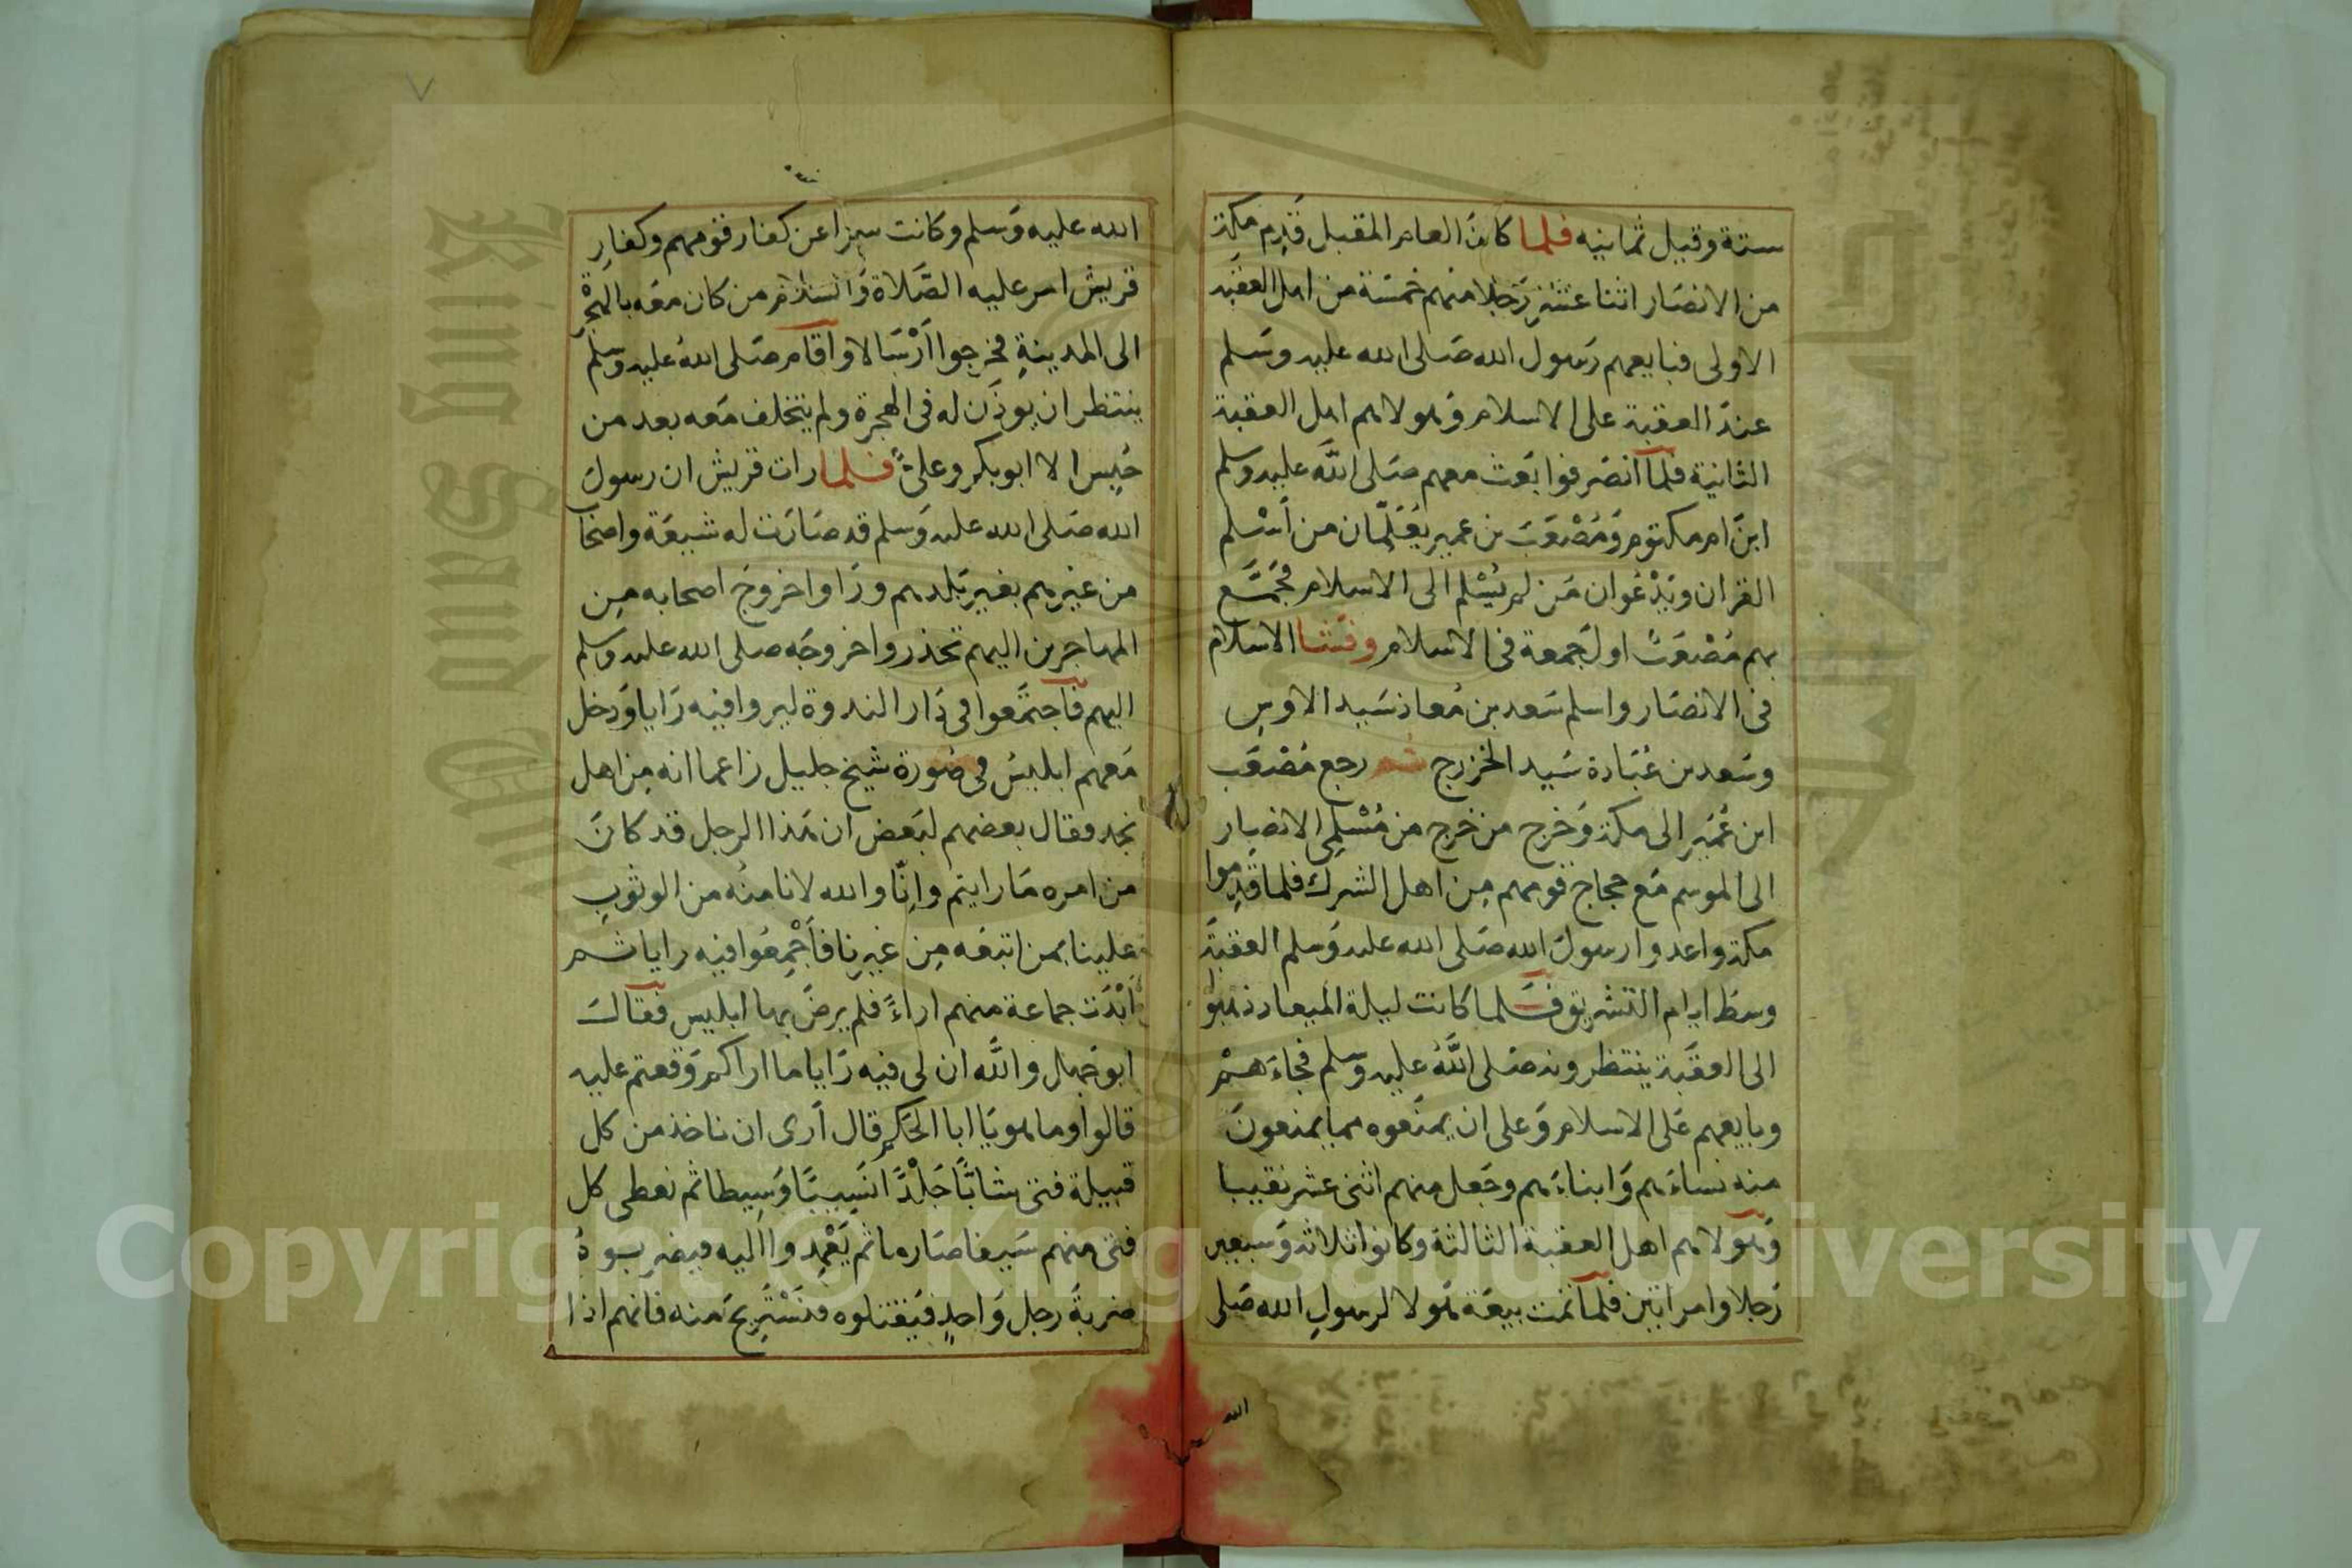 ستة وقيل ثمانيه فلما كان العام المقبل قَدِم مكة
من الانصار اثنا عشر رَجلا منهم خمسَة من اهل العقبه
الاولى فبايعهم رَسول الله صَلى الله عليه وسَلم
عندَ العقبة على الاسلام وَهولاهم اهل العقبة
الثانية فلمآ انصَرفوا بَعث معهم صَلى اللَّه عليه وسلم
ابنَ ام مكتوم وَمُصْعَبَ بن عمير يُعَلّمان من أسْلم
القران ويَدْعُوان مَن لم يُسْلم الى الاسلام فجَمَّع
بهم مُصْعَبٌ اول جَمعة فى الاسلام وفشا الاسلام
فى الانصَار واسلم سَعد بن مُعاذ سَيد الاوسِ
وسَعد بن عُبَادة سَيد الخزرج ثم رجع مُصْعَب
ابن عُمَير الى مكة وَخرج من خرج من مُسْلِمى الانصار
الى الموسم مَع حجاج قومهم مِن اهل الشرك فلما قَدِموا
مكة واعدوا رسولَ الله صَلى الله عليه وَسلم العقبَة
وسَط ايام التشريق فلما كانت ليلة الميعاد ذهبوا
الى العقبَة ينتظرونه صَلى اللَّهُ عليه وسلم فجَاءَهم
وبايعهم عَلى الاسلام وَعلى ان يمنَعوه مما يمنعونَ
منه نساءَهم وَابناءَهم وجَعل منهم اثنى عشر نقيبا
وَهولاهم اهل العقبة الثالثة وكانوا ثلاثة وَسبعين
رَجلا وامراتين فلمآ تمت بيعَة هَولا لرسولِ الله صَلى
الله
الله عليه وَسلم وكانت سِرا عن كفار قومهم وكفارِ
قريش امر عليه الصَّلاة وَالسلام من كان معَه بالهجْرَة
الى المدينةِ فخرجوا أرْسَالا وآقام صَلى اللهُ عليه وسلم
ينتظر ان يوذَن له فى الهجرة ولم يتخلف مَعه بعد من
حُبِس الا ابو بكر وعلىٌ فلما رات قريش ان رسولَ
الله صَلى الله عليه وَسلم قد صَارَت له شيعَة واصحَا
من غيرهم بغير بَلدهم ورَاوا خروجَ اصحابه مِن
المهاجرين اليهم تحذروا خروجَه صلى الله عليه وسلم
اليهم فآجتمَعوا فى دَار الندوة ليروا فيه رَايا وَدخل
مَعهم ابليسُ فى صُورة شيخ جليل زاعما انه مِن اهل
نجد فقال بعضهم لبَعض ان هَذا الرجل قد كانَ
من امره مَا رايتم وانّا والله لا نامنُه من الوثوبِ
علينا بمن اتبَعَه مِن غيرِنا فأجْمِعُوا فيه رايا ثم
أبْدَت جماعة منهم اراءً فلم يرضَ بها ابليس فقآلَ
ابو جَهل واللَّه ان لى فيه رَايا ما اراكم وَقعتم عليه
قالوا وما هو يَا ابا الحَكم قال أرى ان ناخذ من كل
قبيلة فتى شابًّا جَلْدًا نَسِيبًا وَسِيطا ثم نعطى كل
فتى منهم سَيفا صَارما ثم يَعْمِدوا اليه فيضربوهُ
ضربةَ رجل وَاحدٍ فيَقتلوه فنَسْتَريحَ منه فانهم اذا
King Saud University
Copyright © King Saud University